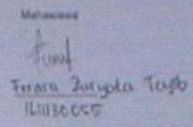 Mahasiswa
Ferara Zuryota Tayib
1611130055